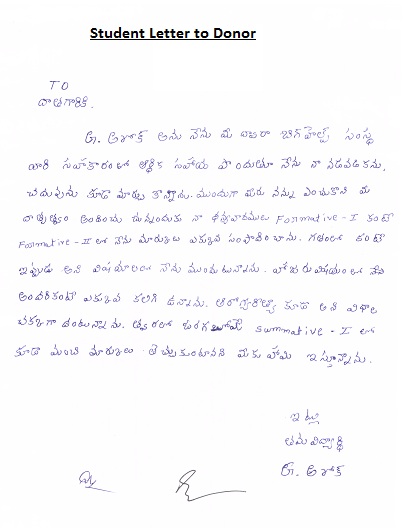 Student Letter to Donor
TO
దాతగారికి.
G. అశోక్ అను నేను మీ ద్వారా బిగ్‌హెల్ప్ సంస్థ
వారి సహకారంలో ఆర్థిక సహాయ పొందుతూ నేను నా నడవడికను,
చదువును కూడా మార్చు కొన్నాను. ముందుగా మీరు నన్ను ఎంచుకొని మీ
దాతృత్వం అందించు చున్నందుకు నా ధన్యవాదములు Formative-I కంటే
Formative-II లో నేను మార్కులు ఎక్కువ సంపాదించాను. గతంలో కంటే
ఇప్పుడు అని విషయాలలో నేను ముందుటున్నాను. హాజరు విషయంలో నేనే
అందరికంటే ఎక్కువ కలిగి ఉన్నాను. ఆరోగ్యరీత్యా కూడా అని విధాల
చక్కగా ఉంటున్నాను. త్వరలో జరగబోయే summative-I లో
కూడా మంచి మార్కులు తెచ్చుకుంటానని మీకు హామీ ఇస్తున్నాను.
ఇట్లు
తమ విద్యార్థి
G. అశోక్